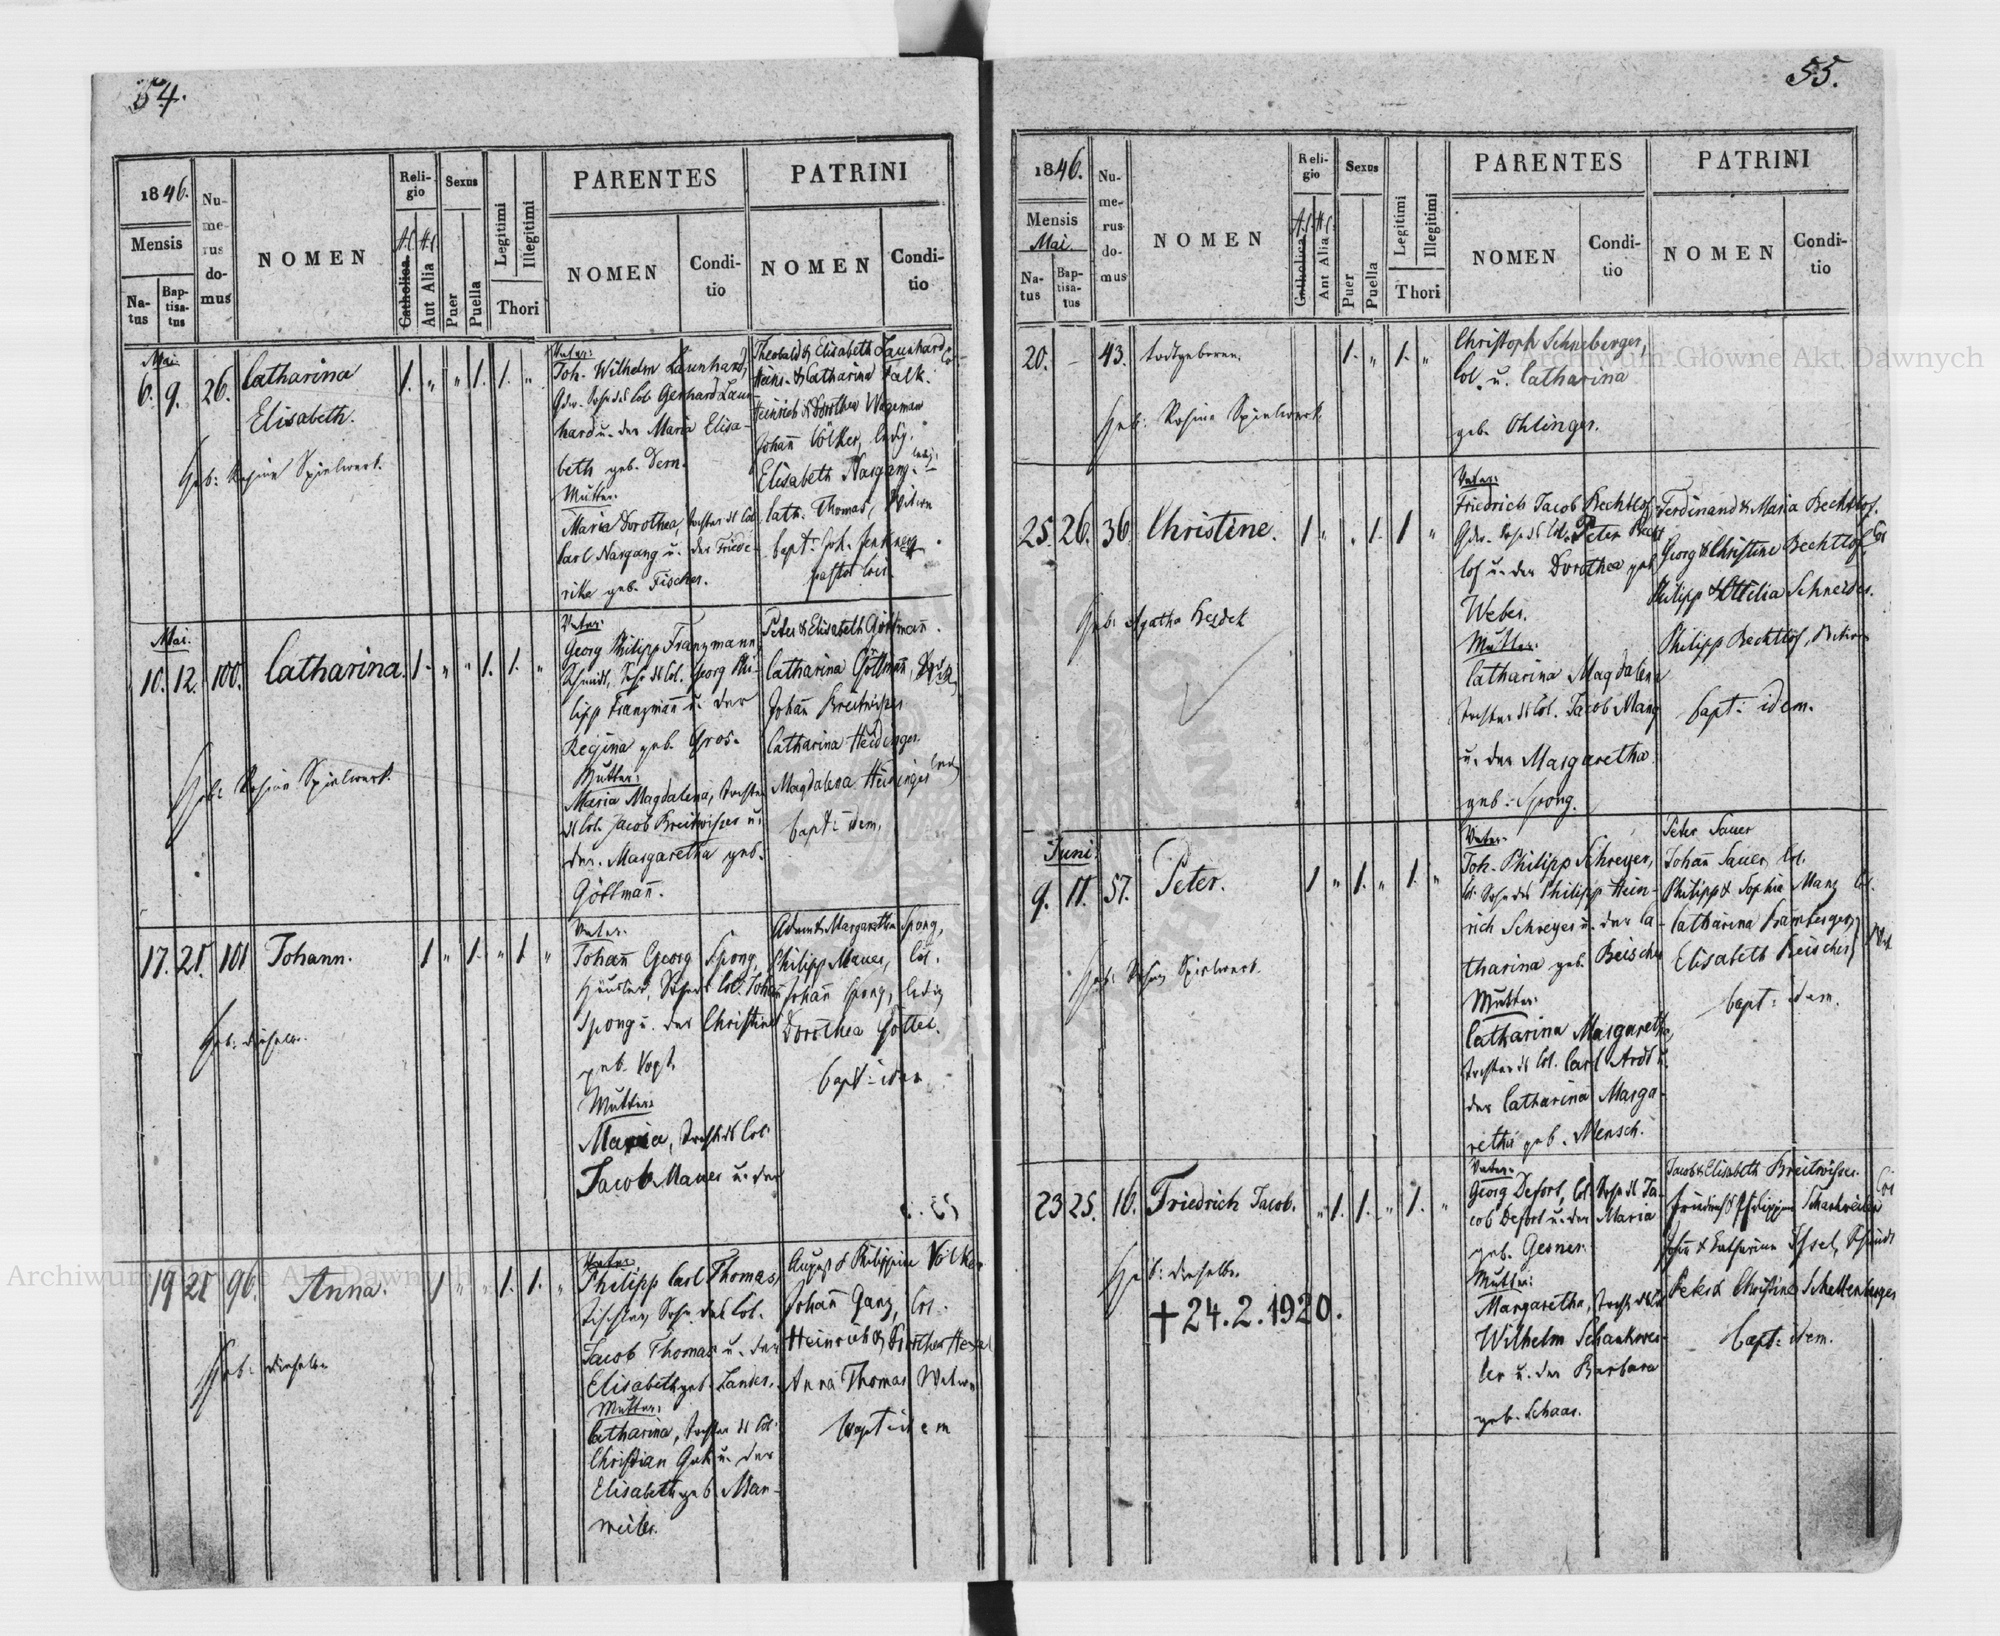 54.
1846.
Mensis
Natus
Baptisatus
Numerus domus
NOMEN
Religio
A.C.
H.C.
Catholica
Aut Alia
Sexus
Puer
Puella
Legitimi
Illegitimi
Thori
PARENTES
NOMEN
Conditio
PATRINI
NOMEN
Conditio
Mai
6. 9. 26. Catharina
Elisabeth.
Geb: Rosina Spielwerk.
1. " " 1. 1. "
Vater:
Joh. Wilhelm Launhard,
Gdw. Sohn des Col. Gerhard Laun-
hard u. der Maria Elisa-
beth geb. Dern.
Mutter:
Maria Dorothea, Tochter ds Col.
Carl Nargang u. der Friede-
rike geb. Fischer.
Theobald & Elisabeth Launhard, Col.
Heinr. & Catharina Falk.
Heinrich & Dorothea Wageman
Johann Völker, ledig.
Elisabeth Nargang. ledig:
Cath. Thomas, Witwe
bapt: Joh.
pastor loci
Mai.
10. 12. 100. Catharina.
Geb: Rosina Spielwerk.
1. " " 1. 1. "
Vater:
Georg Philipp Franzmann,
Schmidt, Sohn ds Col. Georg Phi-
lipp Franzmann u. der
Regina geb. Gros.
Mutter:
Maria Magdalena, Tochter
ds Col. Jacob Breitwiser u.
der Margaretha geb.
Göttmann.
Peter & Elisabeth Göttmann.
Catharina Göttmann,
Johann Breitwiser
Catharina Heidinger
Magdalena Heidinger ledig
bapt: idem.
17. 21. 101 Johann.
Geb: dieselbe.
1 " 1. " 1 "
Vater:
Johann Georg Spong,
Häusler, Sohn ds Col. Johann
Spong u. der Christina
geb. Vogt.
Mutter:
Maria, Tocht. ds Col.
Jacob Mauer u. der
Adam & Margaretha Spong,
Philipp Mauer, Col.
Johann Spong, ledig
Dorothea Göttel.
bapt: idem
19 21 96. Anna.
Geb: dieselbe
1 " " 1. 1. "
Vater:
Philipp Carl Thomas,
Tischler, Sohn des Col.
Jacob Thomas u. der
Elisabeth geb. Lanker.
Mutter:
Catharina, Tochter ds Col.
Christian u. der
Elisabeth geb. Man-
weiler.
August & Philippine Völker
Johann Ganz, Col.
Heinrich & Dorothea
Anna Thomas Witwe
bapt idem
55.
1846.
Mensis
Mai.
Natus
Baptisatus
Numerus domus
NOMEN
Religio
A.C.
H.C.
Catholica
Aut Alia
Sexus
Puer
Puella
Legitimi
Illegitimi
Thori
PARENTES
NOMEN
Conditio
PATRINI
NOMEN
Conditio
20. – 43. todtgeboren.
Geb: Rosina Spielwerk
1. " 1. "
Christoph Schneberger,
Col. u. Catharina
geb. Ohlinger.
25. 26. 36 Christine.
Geb: Agatha Bezdek
1 " . 1. 1 "
Vater:
Friedrich Jacob Bechtlof,
Gdw. Sohn ds Col. Peter Becht
lof u. der Dorothea geb
Weber.
Mutter:
Catharina Magdalena
Tochter ds Col. Jacob Mang
u. der Margaretha
geb: Spong.
Ferdinand & Maria Bechtlof.
Georg & Christine Bechtlof Col
Philipp & Ottilia Schneider.
Philipp Bechtlof, Witwer
bapt: idem.
Juni.
9. 11. 57. Peter.
Geb: Rosina Spielwerk.
1 " 1. " 1. "
Vater:
Joh. Philipp Schreyer,
Col. Sohn des Philipp Hein-
rich Schreyer u. der Ca-
tharina geb. Beischer
Mutter:
Catharina Margaretha,
Tochter ds Col. Carl Ardt u.
der Catharina Marga-
retha geb. Mensch.
Peter Sauer
Johann Sauer, Col.
Philipp & Sophia Manz Col.
Catharina Bamberger
Elisabeth Beischer
bapt: idem.
23 25. 16. Friedrich Jacob.
Geb: dieselbe.
† 24.2.1920.
" 1. 1. " 1. "
Vater:
Georg Defort, Col. Sohn ds Ja-
cob Defort u. der Maria
geb. Gesner
Mutter:
Margaretha, Tocht. ds Col
Wilhelm Schankwei-
ler u. der Barbara
geb. Schaar.
Jacob & Elisabeth Breitwiser. Col
Friedrich & Philippina Schankweiler
John & Catharina Issel, Schmidt
Peter & Christine Schellenberger
bapt: idem.
Archiwum Główne Akt Dawnych
Archiwum Główne Akt Dawnych